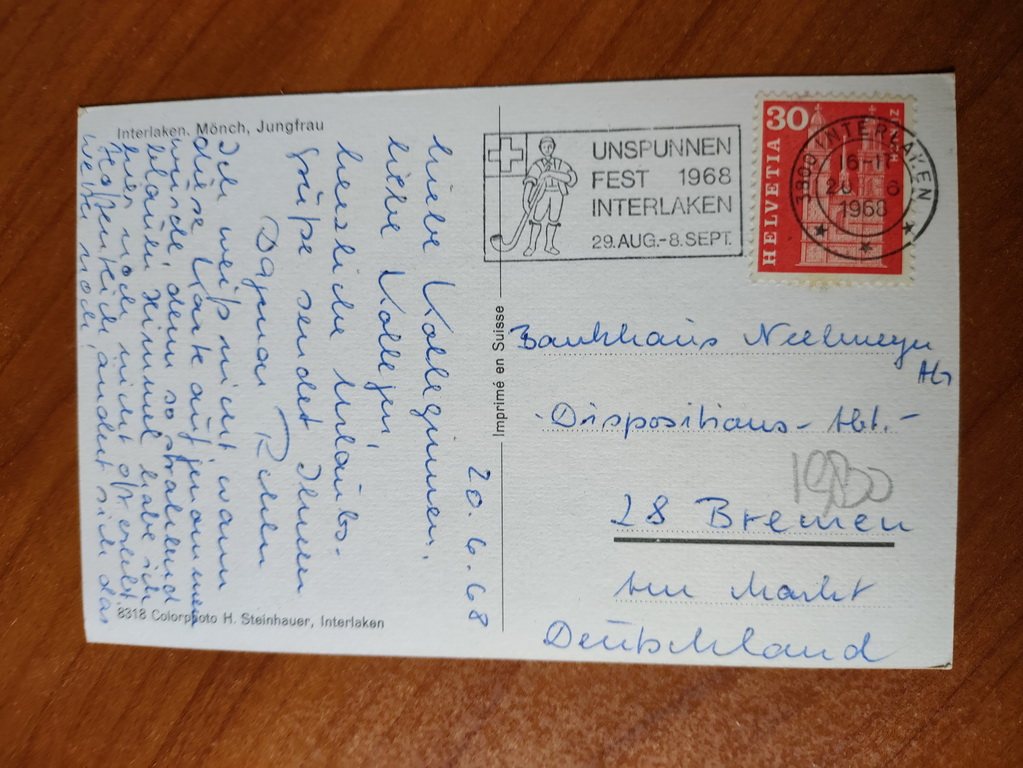 Interlaken. Mönch, Jungfrau
20.6.68
Liebe Kolleginnen,
liebe Kollegen,
herzliche Urlaubs-
grüße sendet Ihnen
Dagmar
Ich weiß nicht wann
diese Karte aufgenommen
wurde, denn so strahlend
blauen Himmel habe ich
hier noch nicht oft erlebt.
Hoffentlich ändert sich das
Wetter noch.
8318 Colorphoto H. Steinhauer, Interlaken
Imprimé en Suisse
UNSPUNNEN
FEST 1968
INTERLAKEN
29.AUG.-8.SEPT.
30
HELVETIA
3800 INTERLAKEN
1968
Bankhaus Neelmeyer
AG
-Dispositions-Abt.-
28 Bremen
Am Markt
Deutschland